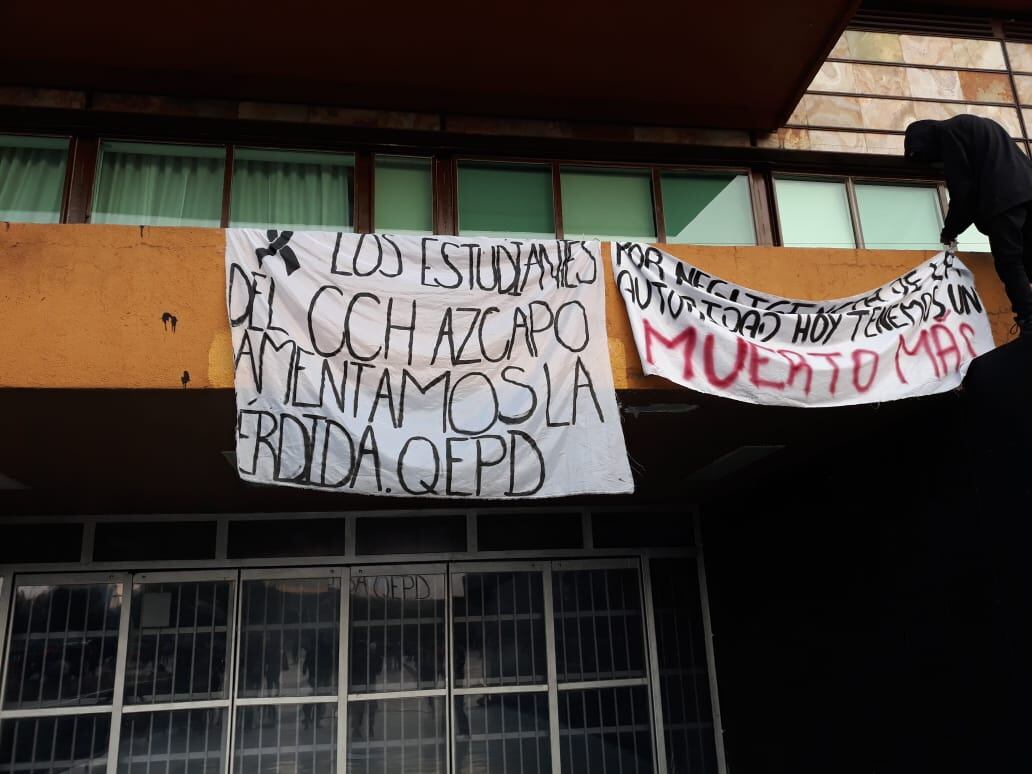 LOS ESTUDIANTES
DEL CCH AZCAPO
AMENTAMOS LA
ERDIDA. QEPD
POR NEGLIGENCIA DE LA
AUTORIDAD HOY TENEMOS UN
MUERTO MÁS
DA QEPD